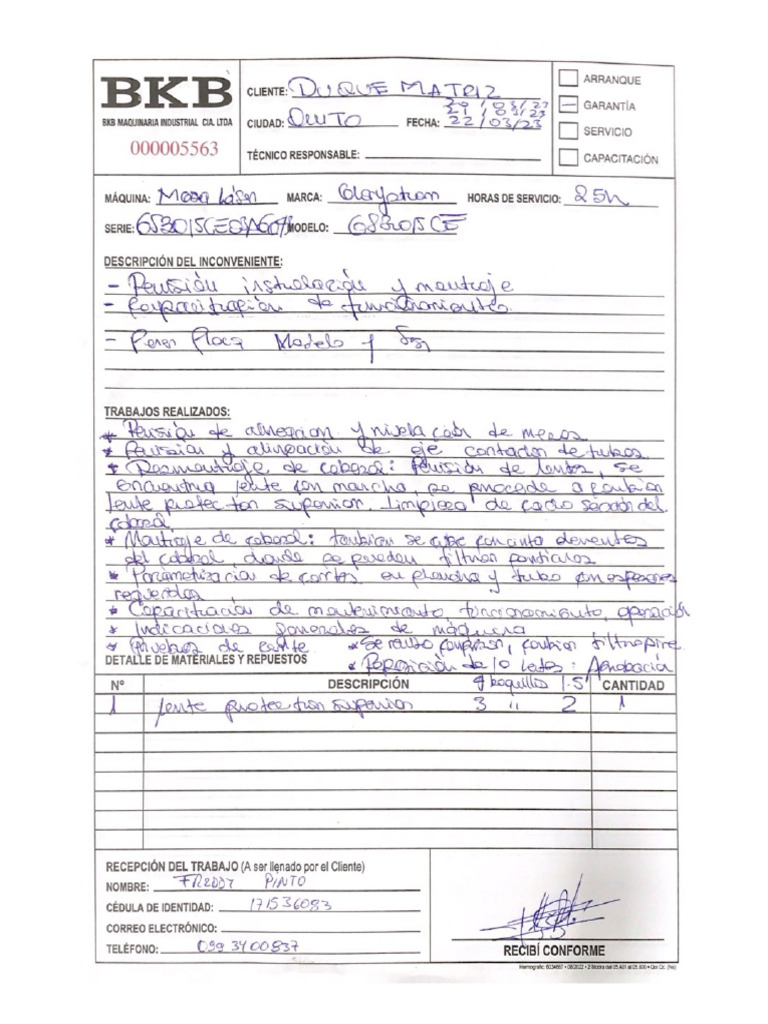 BKB
BKB MAQUINARIA INDUSTRIAL CIA. LTDA
000005563
CLIENTE: DUQUE MATRIZ
CIUDAD: QUITO FECHA: 22/03/23
TÉCNICO RESPONSABLE:
ARRANQUE
GARANTÍA
SERVICIO
CAPACITACIÓN
MÁQUINA: Mesa láser MARCA: HORAS DE SERVICIO: 25h
SERIE: MODELO: GS3015CE
DESCRIPCIÓN DEL INCONVENIENTE:
- Revisión instalación y montaje
- Capacitación de funcionamientos
- Placa Modelo y
TRABAJOS REALIZADOS:
* Revisión de alineacion y nivelación de mesas
* Revisión y alineación de eje cortador de tubos
* Desmontaje de cabezal: Revisión de lentes, se
encuentra lente con mancha, se procede a cambiar
lente protector superior. Limpieza de cada sección del
cabezal
* Montaje de cabezal: tambien se
del cabezal, donde se pueden filtrar particulas
* Parametrizacion de cortes en plancha y tubo con espesores
requeridos
* Capacitación de mantenimiento, funcionamiento, operación
* Indicaciones generales de máquina
* Pruebas de corte * Se reviso compresor, cambian filtros
* Reposición de 10 lentes: Aprobacion
DETALLE DE MATERIALES Y REPUESTOS
Nº DESCRIPCIÓN 4 boquillas 1.5 CANTIDAD
1 lente protector superior 3 " 2 1
RECEPCIÓN DEL TRABAJO (A ser llenado por el Cliente)
NOMBRE: FREDDY PINTO
CÉDULA DE IDENTIDAD: 171536083
CORREO ELECTRÓNICO:
TELÉFONO: 0993400837
RECIBÍ CONFORME